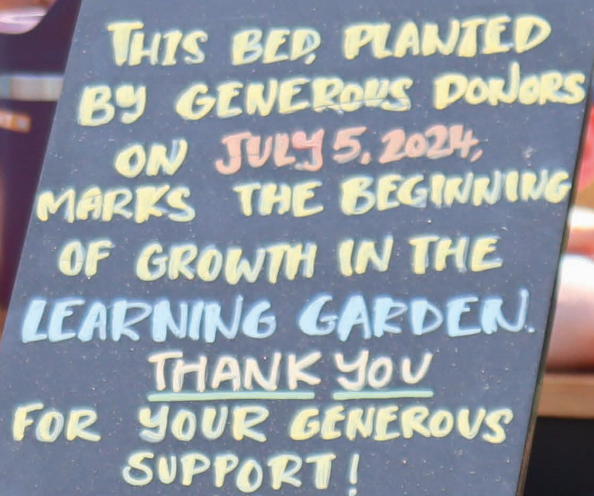 THIS BED, PLANTED
BY GENEROUS DONORS
ON JULY 5, 2024,
MARKS THE BEGINNING
OF GROWTH IN THE
LEARNING GARDEN.
THANK YOU
FOR YOUR GENEROUS
SUPPORT!